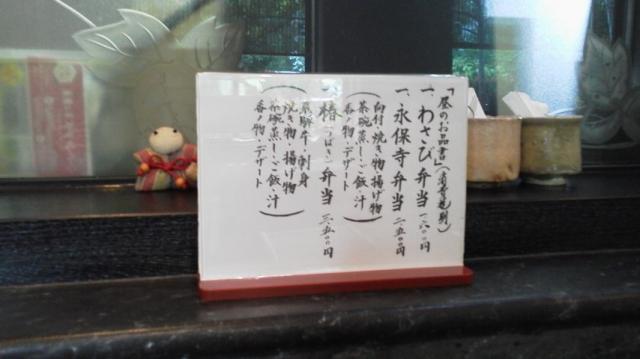 「昼のお品書」(消費税別)
一、わさび弁当 一六〇〇円
一、永保寺弁当 二、五〇〇円
(向付・焼き物・揚げ物
茶碗蒸し・ご飯・汁
香ノ物・デザート)
一、椿(つばき)弁当 三、五〇〇円
(飛騨牛・刺身
焼き物・揚げ物
茶碗蒸し・ご飯・汁
香ノ物・デザート)